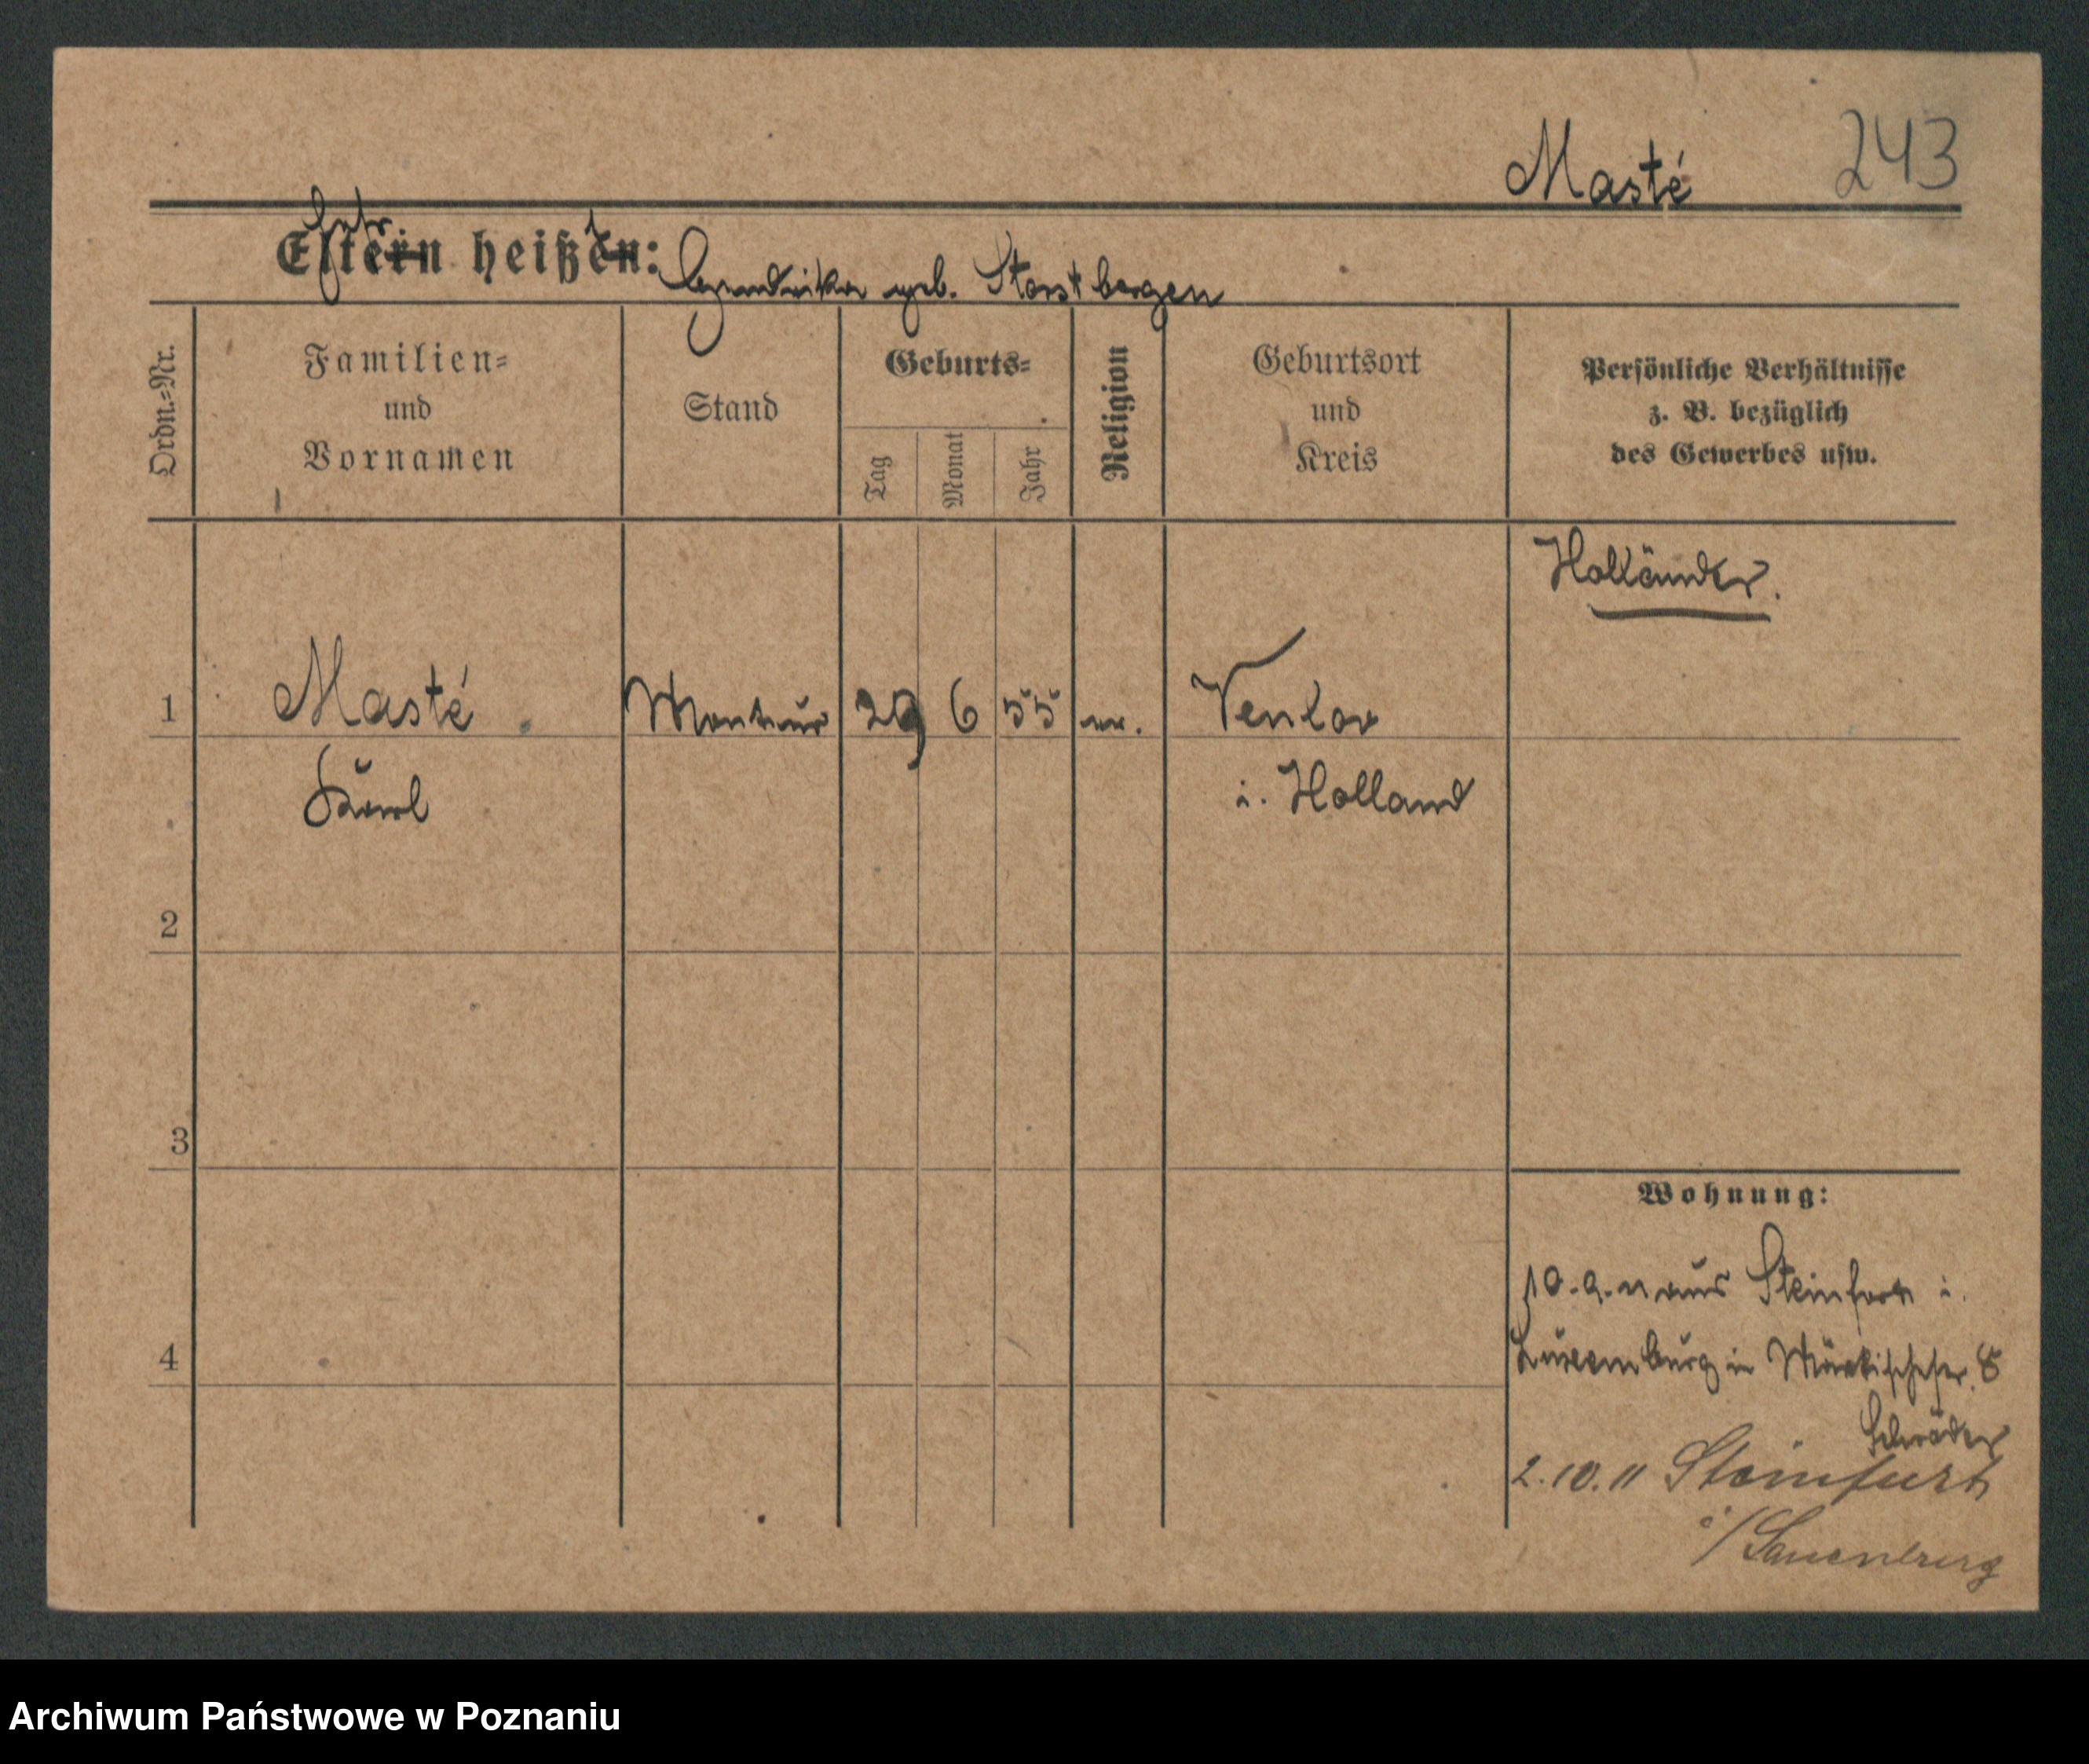 Masté 243
Eltern heißen: Hendrika geb. Storstbergen
Ordn.-Nr.
Familien-
und
Vornamen
Stand
Geburts-
Tag
Monat
Jahr
Religion
Geburtsort
und
Kreis
Persönliche Verhältnisse
z. B. bezüglich
des Gewerbes usw.
Holländer.
1 Masté Monteur 29 6 55 Venlov
Karl i. Holland
2
3
Wohnung:
10. 9. 11 aus Steinfort i.
4
Luxemburg in Märkischestr. 8
Schröder
2. 10. 11 Steinfurt
i/
Archiwum Państwowe w Poznaniu